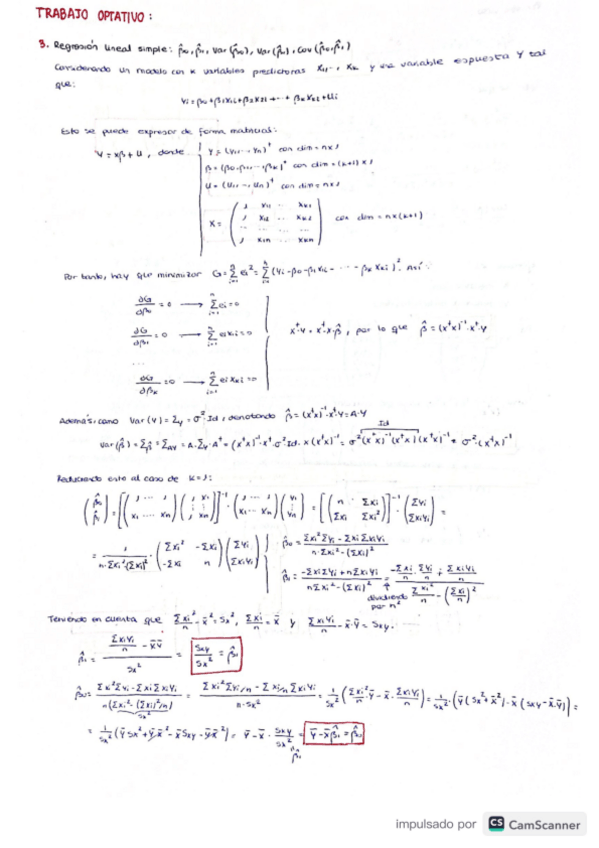 TRABAJO OPTATIVO:
3. Regresión lineal simple: β̂₀, β̂₁, Var(β̂₀), Var(β̂₁), Cov(β̂₀, β̂₁)
Considerando un modelo con K variables predictoras X₁, ..., Xₖ y una variable respuesta Y tal
que:
Yi = β₀ + β₁X₁i + β₂X₂i + ... + βₖXₖi + Ui
Esto se puede expresar de forma matricial:
Y = Xβ + U, donde
Y = (Y₁, ..., Yn)ᵗ con dim = n×1
β = (β₀, β₁, ..., βₖ)ᵗ con dim = (k+1)×1
U = (U₁, ..., Un)ᵗ con dim = n×1
X = ( 1 X₁₁ ... Xₖ₁
1 X₁₂ ... Xₖ₂
1 X₁n ... Xₖn ) con dim = n×(k+1)
Por tanto, hay que minimizar G = Σ ei² = Σ (Yi - β₀ - β₁X₁i - ... - βₖXₖi)². Así:
∂G/∂β₀ = 0 → Σ ei = 0
∂G/∂β₁ = 0 → Σ eiX₁i = 0
XᵗY = XᵗXβ̂, por lo que β̂ = (XᵗX)⁻¹XᵗY
...
∂G/∂βₖ = 0 → Σ eiXₖi = 0
Además, como Var(Y) = Σy = σ²·Id, denotando β̂ = (XᵗX)⁻¹·XᵗY = A·Y
Id
Var(β̂) = Σβ̂ = ΣAY = A·Σy·Aᵗ = (XᵗX)⁻¹·Xᵗ·σ²Id·X(XᵗX)⁻¹ = σ²(XᵗX)⁻¹(XᵗX)(XᵗX)⁻¹ = σ²·(XᵗX)⁻¹
Reduciendo esto al caso de k=1:
(β̂₀ β̂₁) = [(1 ... 1 / X₁ ... Xn)(1 X₁ / ⋮ ⋮ / 1 Xn)]⁻¹ · (1 ... 1 / X₁ ... Xn)(Y₁ ⋮ Yn) = [(n ΣXi / ΣXi ΣXi²)]⁻¹ · (ΣYi / ΣXiYi) =
= 1/(n·ΣXi² - (ΣXi)²) · (ΣXi² -ΣXi / -ΣXi n)(ΣYi / ΣXiYi)
β̂₀ = (ΣXi²ΣYi - ΣXiΣXiYi)/(n·ΣXi² - (ΣXi)²)
β̂₁ = (-ΣXiΣYi + nΣXiYi)/(nΣXi² - (ΣXi)²) = (-ΣXi/n · ΣYi/n + ΣXiYi/n)/(ΣXi²/n - (ΣXi/n)²)
dividiendo
por n²
Teniendo en cuenta que ΣXi²/n - X̄² = Sx², ΣXi/n = X̄ y ΣXiYi/n - X̄·Ȳ = Sxy.
β̂₁ = (ΣXiYi/n - X̄Ȳ)/Sx² = Sxy/Sx² = β̂₁
β̂₀ = (ΣXi²ΣYi - ΣXiΣXiYi)/(n(ΣXi² - (ΣXi)²/n)) = (ΣXi²ΣYi/n - ΣXi/n ΣXiYi)/(n·Sx²) = 1/Sx² (ΣXi²/n Ȳ - X̄·ΣXiYi/n) = 1/Sx² · (Ȳ(Sx² + X̄²) - X̄(Sxy - X̄·Ȳ)) =
= 1/Sx² (ȲSx² + ȲX̄² - X̄Sxy - ȲX̄²) = Ȳ - X̄·Sxy/Sx² = Ȳ - X̄β̂₁ = β̂₀
β̂₁
impulsado por CS CamScanner